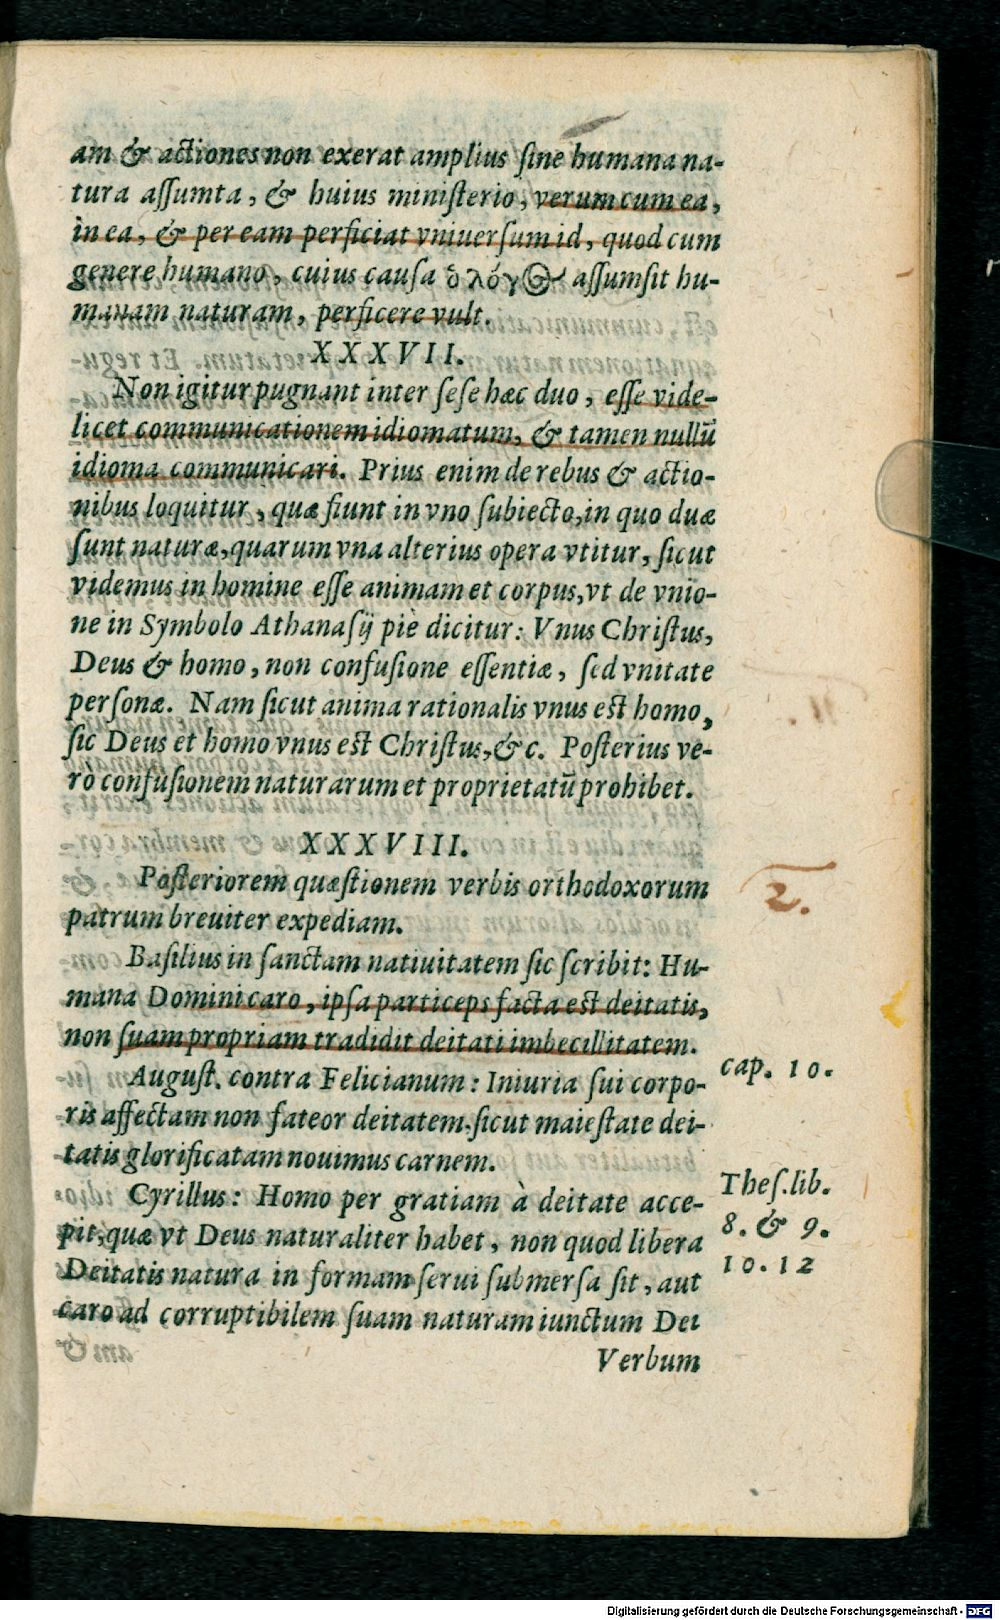 am & actiones non exerat amplius ſine humana na-
tura aſſumta, & huius miniſterio, verum cum ea,
in ea, & per eam perficiat vniuerſum id, quod cum
genere humano, cuius cauſa ὁ λόγος aſſumſit hu-
manam naturam, perficere vult.
XXXVII.
Non igitur pugnant inter ſeſe hæc duo, eſſe vide-
licet communicationem idiomatum, & tamen nullũ
idioma communicari. Prius enim de rebus & actio-
nibus loquitur, quæ fiunt in vno ſubiecto, in quo duæ
ſunt naturæ, quarum vna alterius opera vtitur, ſicut
videmus in homine eſſe animam et corpus, vt de vnio-
ne in Symbolo Athanaſij piè dicitur: Vnus Chriſtus,
Deus & homo, non confuſione eſſentiæ, ſed vnitate
perſonæ. Nam ſicut anima rationalis vnus eſt homo,
ſic Deus et homo vnus eſt Chriſtus, &c. Poſterius ve-
rò confuſionem naturarum et proprietatũ prohibet.
XXXVIII.
Poſteriorem quæſtionem verbis orthodoxorum
patrum breuiter expediam.
2.
Baſilius in ſanctam natiuitatem ſic ſcribit: Hu-
mana Domini caro, ipſa particeps facta eſt deitatis,
non ſuam propriam tradidit deitati imbecillitatem.
Auguſt. contra Felicianum: Iniuria ſui corpo-
cap. 10.
ris affectam non fateor deitatem. ſicut maieſtate dei-
tatis glorificatam nouimus carnem.
Cyrillus: Homo per gratiam à deitate acce-
Theſ. lib.
pit, quæ vt Deus naturaliter habet, non quod libera
8. & 9.
Deitatis natura in formam ſerui ſubmerſa ſit, aut
10. 12
caro ad corruptibilem ſuam naturam iunctum Dei
Verbum
Digitalisierung gefördert durch die Deutsche Forschungsgemeinschaft - DFG